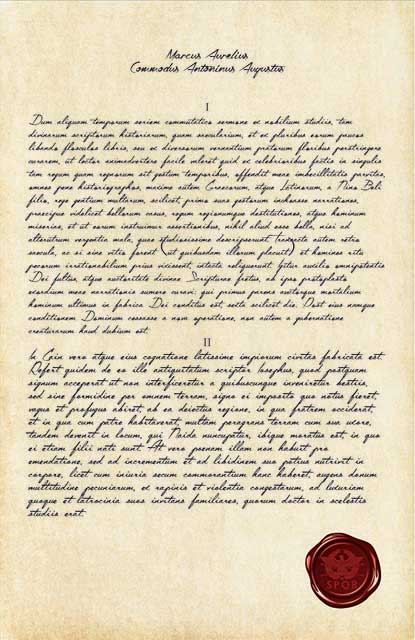 Marcus Aurelius
Commodus Antoninus Augustus
I
Dum aliquam temporum seriem commutatis sermone ex nobilium studiis, tam
divinarum scripturarum historiarum, quam saecularium, et ex pluribus earum paucos
libando flosculos libris, seu ex diversorum vernantium pratorum floribus perstringere
curarem, ut lector animadvertere facile valeret quid ex celebrioribus factis in singulis
tam regum quam regnorum sit gestum temporibus, offendit meae imbecillitatis parvitas,
omnes pene historiographos, maxime autem Graecorum, atque Latinorum, a Nino Beli
filio, rege gentium multarum, scilicet prima suae gestarum inchoasse narrationes,
praecipue videlicet bellorum casus, regum regionumque destitutiones, atque hominum
miserias, et ut earum instruimur assertionibus, nihil aliud esse bella, nisi ad
alterutrum vergentia mala, quae studiosissime descripserunt. Transacta autem retro
saecula, ac si sine vitio forent (ut quibusdam illorum placuit) et hominum ritu
pecorum irrationabilium prius vixissent, intacta reliquerunt. Igitur auxilio omnipotentis
Dei fultus, atque auctoritate divinae Scripturae fretus, ab ipso protoplasto
exordium meae narrationis sumere curavi, qui primus parens cunctorumque mortalium
hominum ultimus in fabrica Dei conditus est, sexta scilicet die. Post eius namque
conditionem Dominum cessasse a nova operatione, non autem a gubernatione
creaturarum haud dubium est.
II
In Cain vero atque eius cognatione latissime impiorum civitas fabricata est.
Refert quidem de eo ille antiquitatum scriptor Iosephus, quod postquam
signum acceperat ut non interficeretur a quibuscunque inveniretur bestiis,
sed sine formidine per omnem terram, signo ei imposito quo notus fieret,
vagus et profugus abiret, ab ea deiectus regione, in qua fratrem occiderat,
et in qua cum patre habitaverat, multam peragrans terram cum sua uxore,
tandem devenit in locum, qui Naida nuncupatur, ibique moratus est, in quo
ei etiam filii nati sunt. At vero poenam illam non habuit pro
emendatione, sed ad incrementum et ad libidinem suo potius nutrivit in
corpore, licet cum iniuria secum commorantium hanc haberet, augens domum
multitudine pecuniarum, ex rapinis et violentia congestarum, ad luxuriam
quoque et latrocinia suos invitans familiares, quorum doctor in scelestis
studiis erat.
SPQR